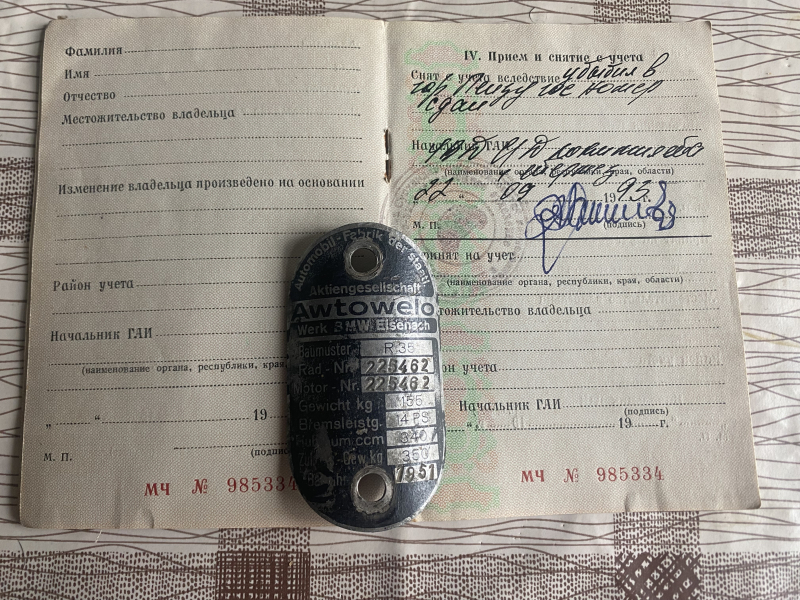 Фамилия
Имя
Отчество
Местожительство владельца
Изменение владельца произведено на основании
Район учета
Начальник ГАИ
(наименование органа, республики, края,
„ “ 19
М. П.
(подпись
МЧ № 985334
IV. Прием и снятие с учета
Снят с учета вследствие убытия в
гор Пензу где номер
сдан
Начальник ГАИ
(наименование органа, республики, края, области)
22 09 1993 г.
М. П.
(подпись)
Принят на учет
(наименование органа, республики, края, области)
местожительство владельца
учета
Начальник ГАИ
(подпись)
19 г.
МЧ № 985334
Automobil-Fabrik der staatl.
Aktiengesellschaft
Awtowelo
Werk BMW Eisenach
Baumuster R 35
Rad.-Nr. 225462
Motor-Nr. 225462
Gewicht kg 155
Bremsleistg. 14 PS
ccm 340
Gew kg 350
1951